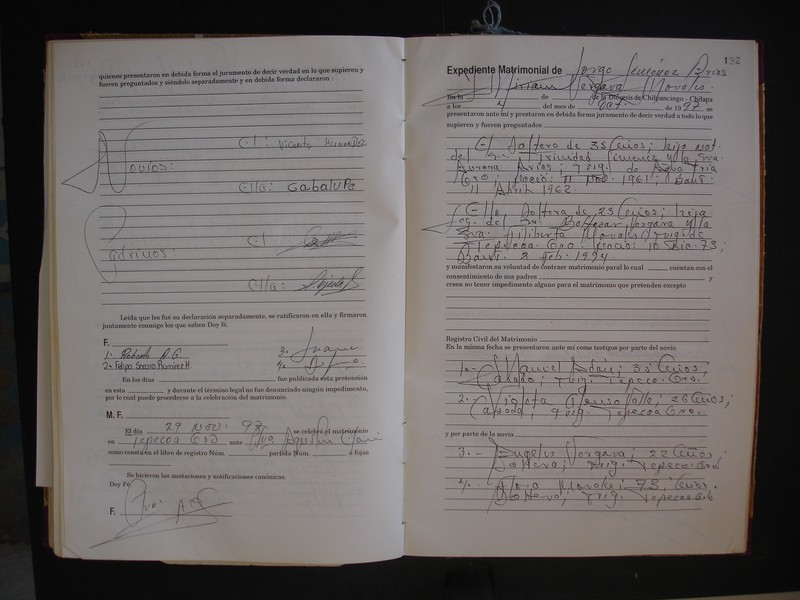 quienes presentaron en debida forma el juramento de decir verdad en lo que supieren y
fueren preguntados y siéndolo separadamente y en debida forma declararon :
El : Vicente Hernandez
Novios :
Ella: Gabalupe
El :
Padrinos :
Ella :
Leída que les fué su declaración separadamente, se ratificaron en ella y firmaron
juntamente conmigo los que saben Doy fé.
F.
1.- Roberto N.G. 3.-
2.- Felipa Socorro Ramirez H. 4.-
En los días fue publicada esta pretensión
en esta y durante el término legal no fue denunciado ningún impedimento,
por lo cual puede procederse a la celebración del matrimonio.
M. F.
El día 29 Nov. 97 se celebró el matrimonio
en Tepecoa Gro ante
como consta en el libro de registro Núm. partida Núm. a fojas
Se hicieron las anotaciones y notificaciones canónicas.
Doy Fé
F.
132
Expediente Matrimonial de Jorge Jiménez Arias
y Miriam Vergara Morales
En la de de la Diócesis de Chilpancingo - Chilapa
a los 4 del mes de de 1997 se
presentaron ante mí y prestaron en debida forma juramento de decir verdad a todo lo que
supieren y fueren preguntados
El Soltero de 35 Años; hijo nat.
del Sr. Trinidad Jimenez y la Sra.
Aurora Arias; y rig. de Agua Fria
Gro; Nació: 11 1961; Baut.
11 Abril 1962.
Ella Soltera de 23 Años; hija
leg. del Sr. Baltazar Vergara y la
Sra. Morales; y rig. de
Tepecoa Gro. Nació: 10 Dic. 73;
Baut. 2 Feb. 1974
y manifestaron su voluntad de contraer matrimonio paral lo cual cuentan con el
consentimiento de sus padres y
creen no tener impedimento alguno para el matrimonio que pretenden excepto
Registro Civil del Matrimonio
En la misma fecha se presentaron ante mí como testigos por parte del novio
1.- Manuel Adán; 35 Años;
Casado; y rig. Tepecoa Gro.
2.- Violeta 26 Años;
Casada; y rig. Tepecoa Gro.
y por parte de la novia
3.- Vergara; 22 Años
Soltera; y rig. Tepecoa Gro
4.- Morales; 73; Años.
Soltera; y rig. Tepecoa Gro